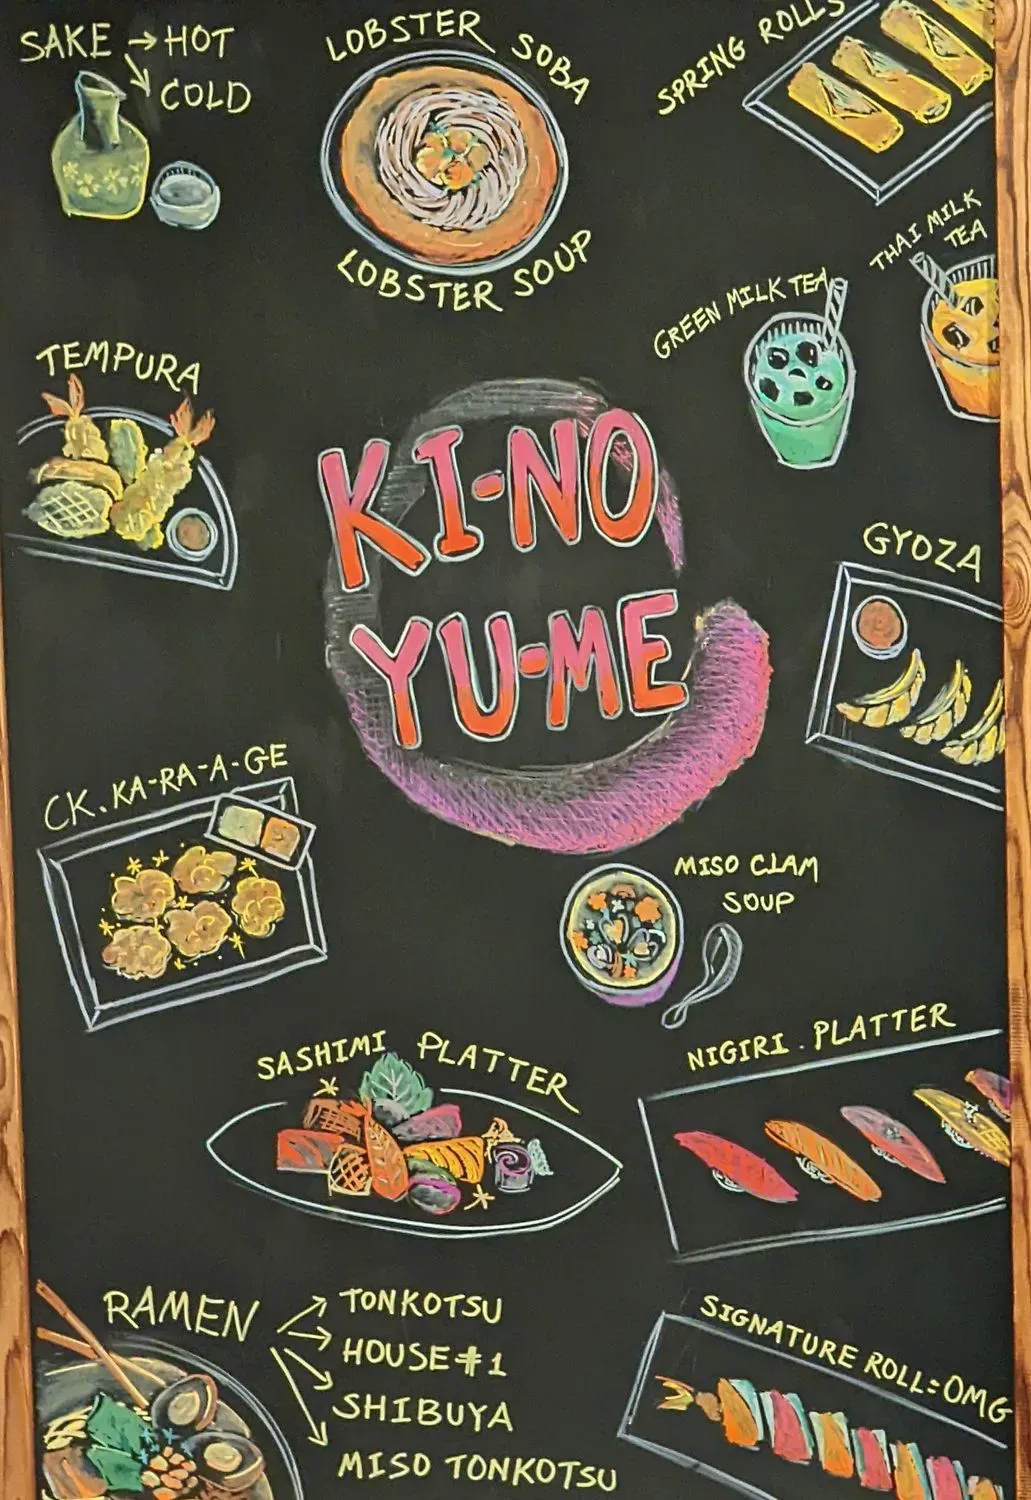 SAKE → HOT
COLD
LOBSTER SOBA
LOBSTER SOUP
SPRING ROLLS
THAI MILK
TEA
GREEN MILK TEA
TEMPURA
KI-NO
YU-ME
GYOZA
CK. KA-RA-A-GE
MISO CLAM
SOUP
SASHIMI PLATTER
NIGIRI. PLATTER
RAMEN
TONKOTSU
HOUSE #1
SHIBUYA
MISO TONKOTSU
SIGNATURE ROLL=OMG